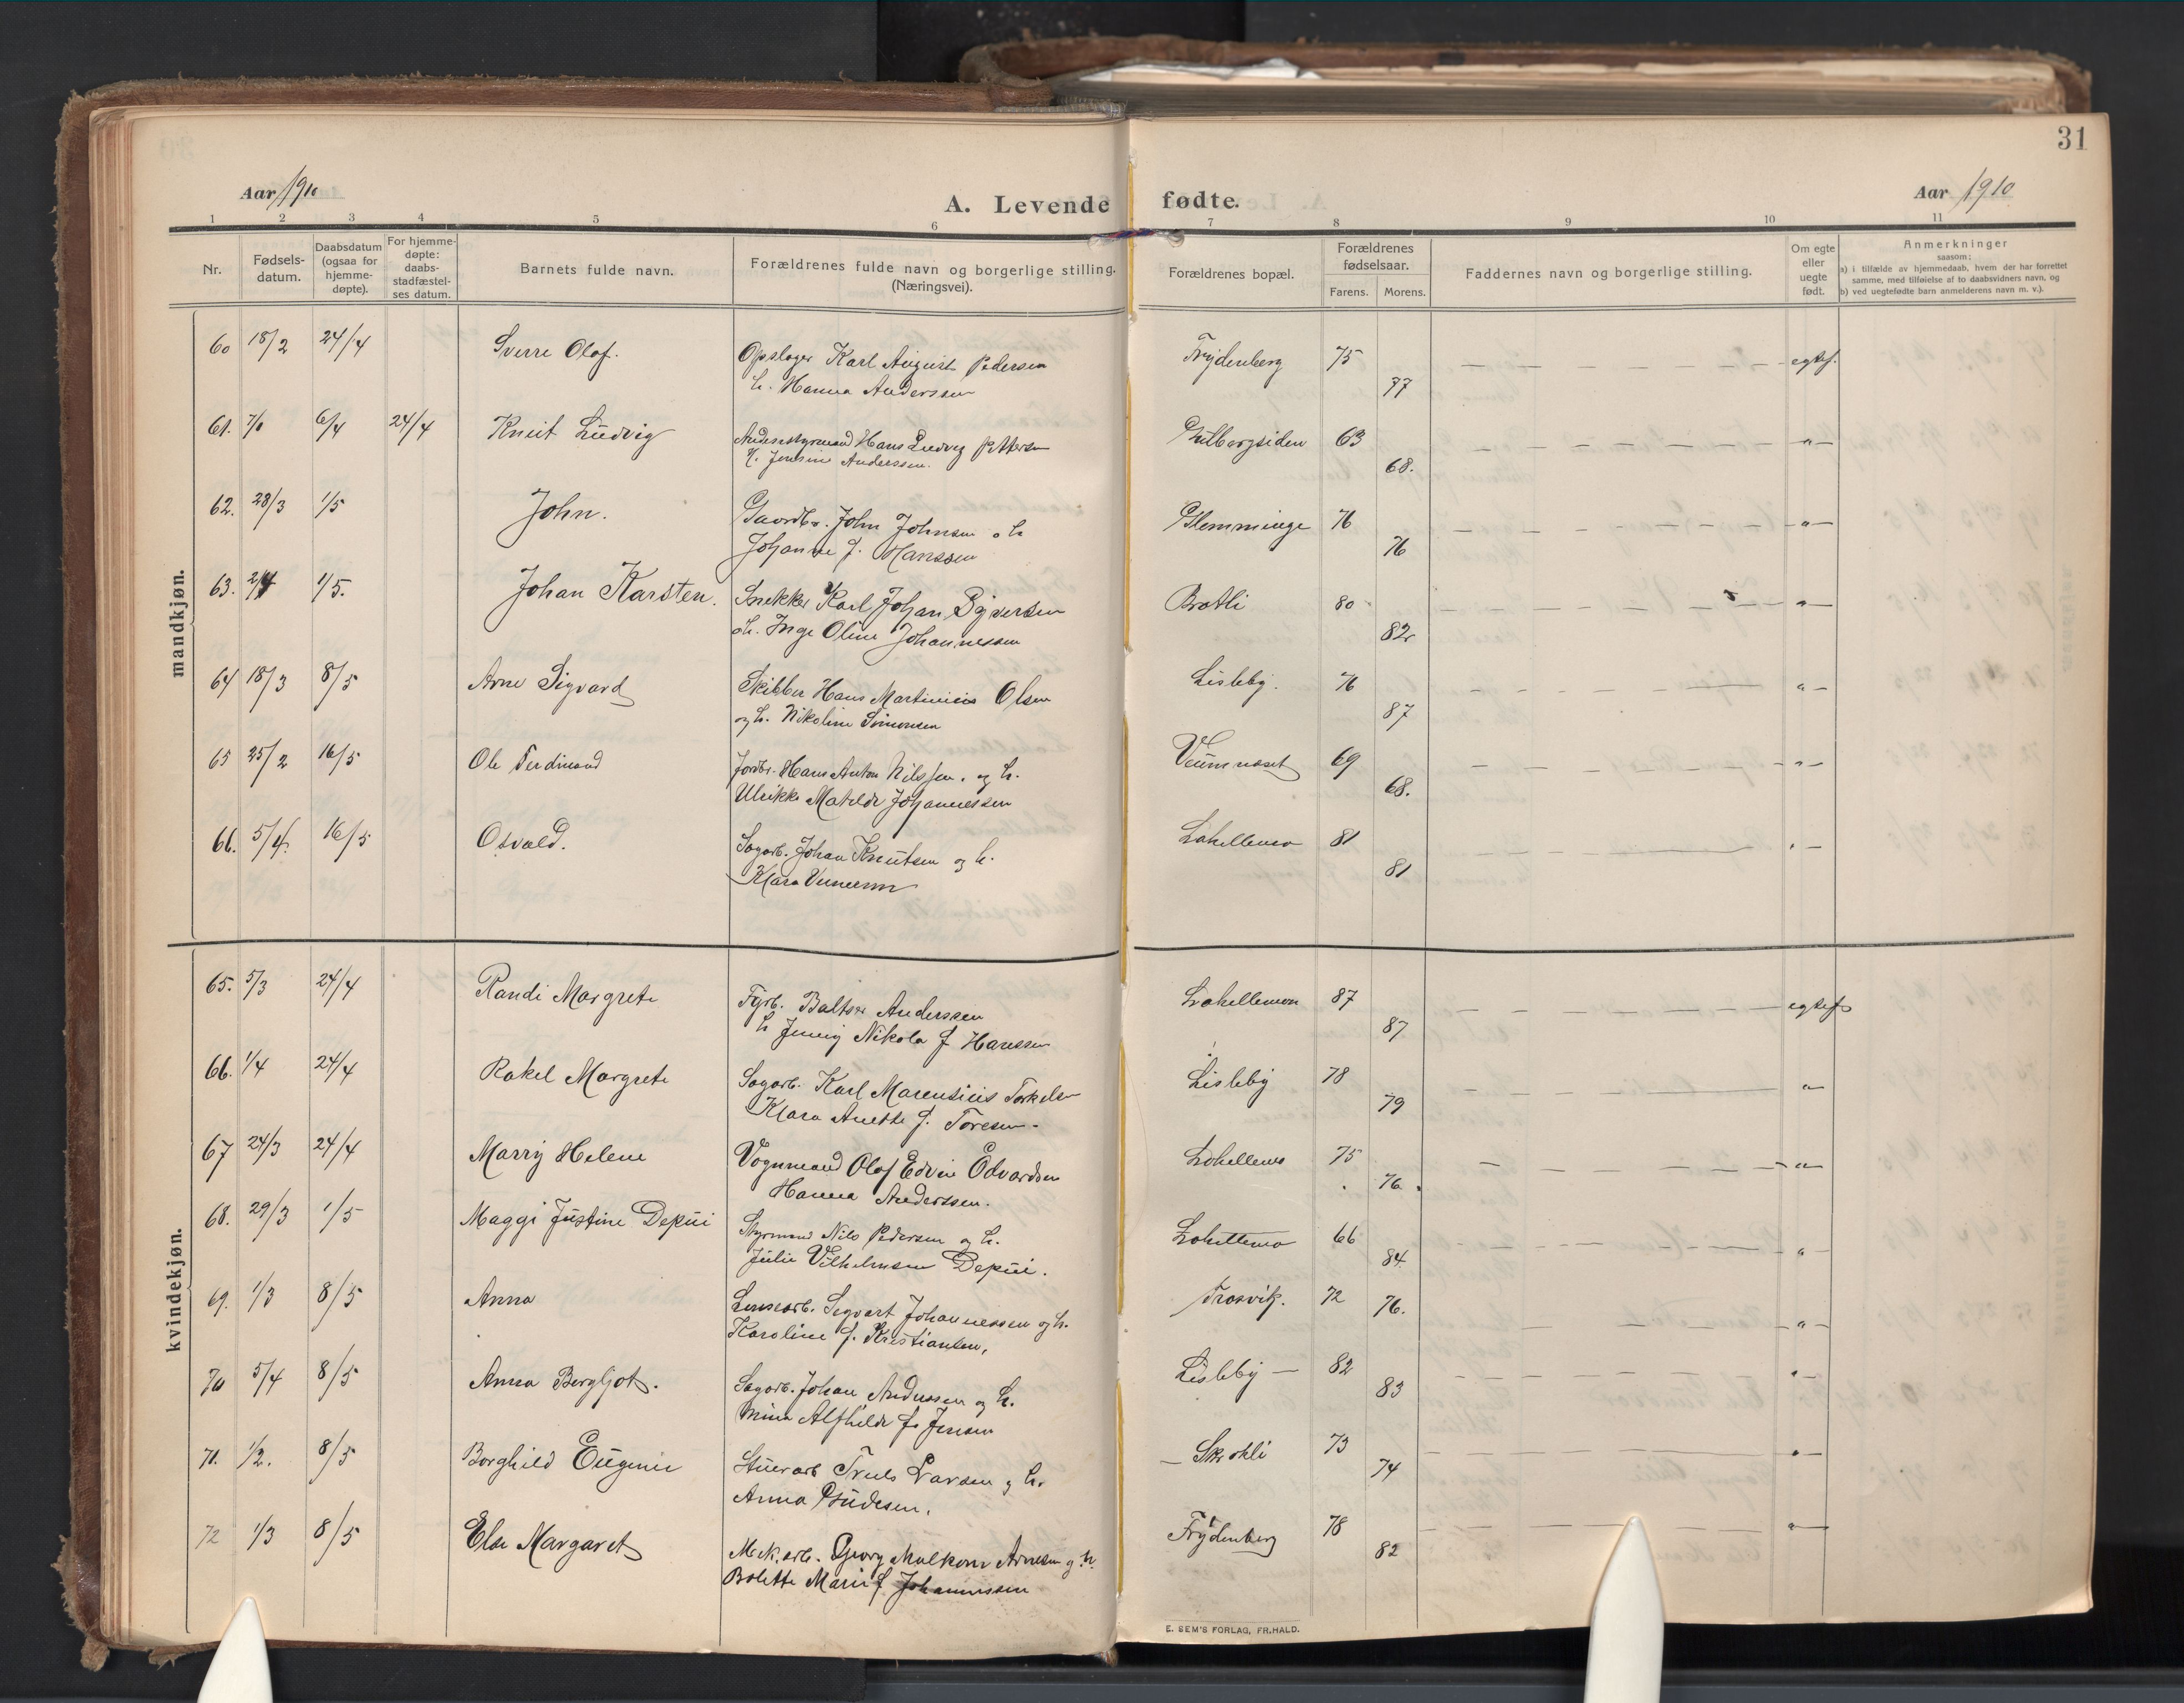 31
Aar 1910
A. Levende fødte.
Aar 1910
1 2 3 4 5 6 7 8 9 10 11
Nr.
Fødsels-
datum.
Daabsdatum
(ogsaa for
hjemme-
døpte).
For hjemme-
døpte:
daabs-
stadfæstel-
ses datum.
Barnets fulde navn.
Forældrenes fulde navn og borgerlige stilling.
(Næringsvei).
Forældrenes bopæl.
Forældrenes
fødselsaar.
Farens. Morens.
Faddernes navn og borgerlige stilling.
Om egte
eller
uegte
født.
Anmerkninger
saasom:
a) i tilfælde av hjemmedaab, hvem der har forrettet
samme, med tilføielse af to daabsvidners navn, og
b) ved uegtefødte barn anmelderens navn m. v.).
mandkjøn.
60 18/2 24/4 Sverre Olaf. Opslager Karl August Pedersen Frydenberg 75 egtef.
h. Hanna Anderssen 77
61. 6/4 24/4 Knut Ludvig Andenstyrmand Hans Ludvig Pettersen 63 -"-
h. Jensine Anderssen. 68.
62. 28/3 1/5 John. Gaardbr. John Johnsen o h Glemminge 76 -"-
Johanne f. Hanssen 76
63. 1/5. Johan Karsten. Snekker Karl Johan Syversen Bratli 80 -"-
o h. Inga Oline Johannessen 82
64 18/3 8/5 Arne Sigvard Skibber Hans Martinius Olsen Lisleby. 76 " -
og h. Nikoline Simonsen 87
65 25/2 16/5 Ole Ferdinand Jordbr. Hans Anton Nilssen. og h. Veumnæset 69 -"-
Ulrikke Matilde Johannessen 68.
66. 5/4. 16/5 Osvald. Sagarb. Johan Knutsen og h. Lahellemo 81 " -
Klara 81
kvindekjøn.
65. 5/3 24/4 Randi Margrete Fyrb. Baltzer Anderssen Lahellemoen 87 egtef
h Jenny Nikola f Hanssen 87
66. 1/4 24/4 Rakel Margrete Sagarb. Karl Marensius Torkelsen Lisleby 78 "
Klara Anette f. Toresen. 79
67 24/3 24/4 Marry Helene Vognmand Olaf Edvin Edvardsen Lahellemo 75 -"-
Hanna Anderssen. 76.
68. 29/3 1/5 Maggi Justine Depui Styrmand Nils Pedersen og h. Lahellemo 66 "
Julie Vilhelmsen Depui. 84.
69. 1/3 8/5 Anna Lensearb. Sigvart Johannessen og h. Trosvik. 72 76. -"-
Karoline f. Kristiansen.
70 5/4 8/5 Anna Bergljot. Sagarb. Johan Anderssen og h. Lisleby - 82 "-
Mina Alfhilde f. Jensen 83
71. 1/2. 8/5 Borghild Eugenie Stuerarb Truls Larsen og h. 73 "-
Anna 74
72 1/3 8/5 Else Margaret Mek. arb. Georg Malkom Arnesen og h. Frydenberg 78 "-
Bolette Marie f Johannessen 82
E. SEM'S FORLAG, FR.HALD.